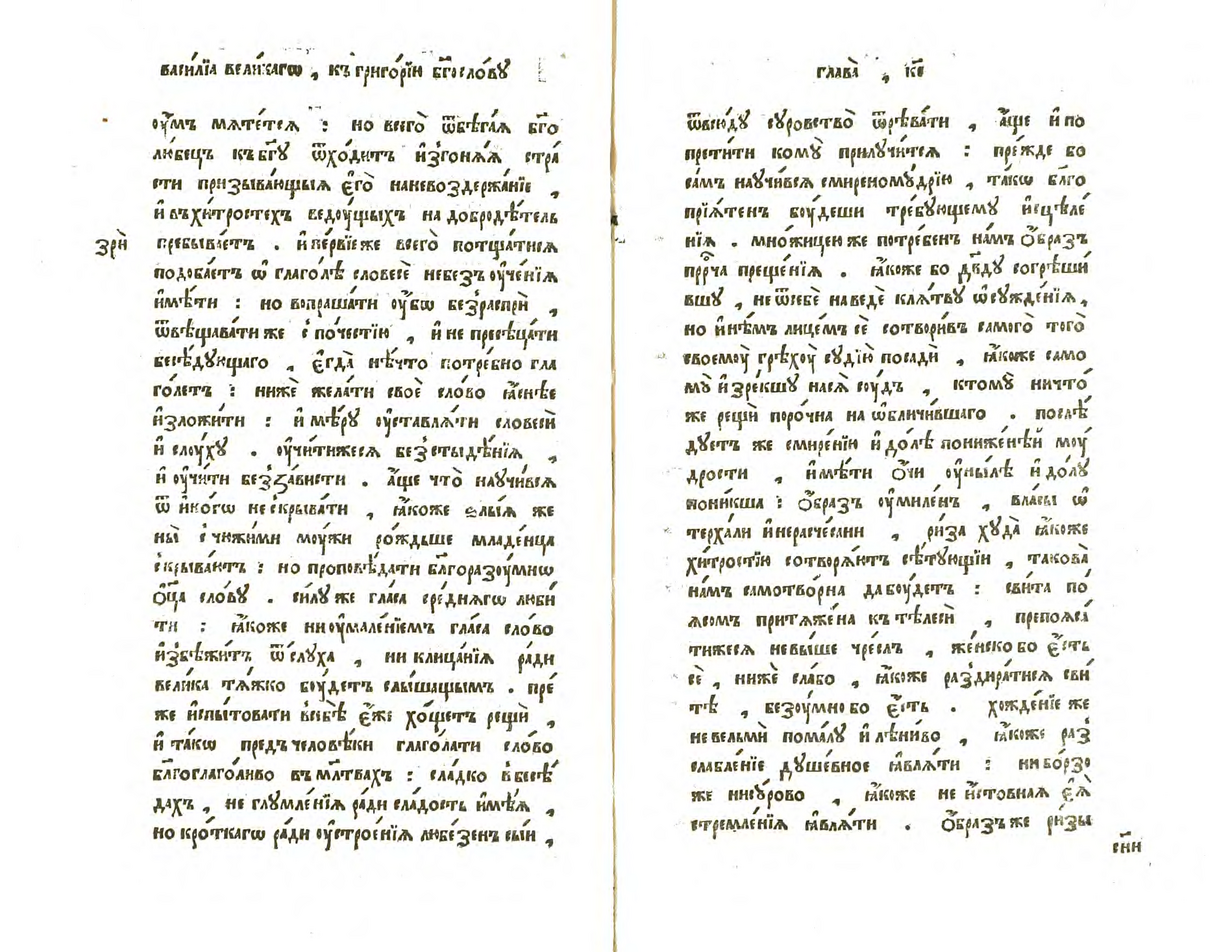 васи́лїа вели́кагѡ , къ григо́рїю бг҃осло́вꙋ
ᲂу҆́мъ мѧте́тсѧ : но всего̀ ѿбѣ́гаѧ бг҃о
лю́бецъ къ бг҃ꙋ ѿхо́дитъ и҆згонѧ́ѧ стра́
сти призыва́ющыѧ є҆го̀ на невоздержа́нїе ,
и҆ въ хи́тростехъ ведᲂу́щыхъ на добродѣ́тель
зрѝ
пребыва́етъ . и҆ пе́рвїе же всего̀ потща́тисѧ
подоба́етъ ѡ҆ глаго́лѣ словесѐ не без̾ ᲂу҆че́нїѧ
и҆мѣ́ти : но вопраша́ти ᲂу҆́бѡ без̾ ра́спрѝ ,
ѿвѣщава́ти же с̾ поче́стїю , и҆ не пресѣца́ти
бесѣ́дꙋющаго , є҆гда̀ нѣ́что потре́бно гла
го́летъ : нижѐ жела́ти своѐ сло́во ꙗ҆́снѣе
и҆зложи́ти : и҆ мѣ́рꙋ ᲂу҆ставлѧ́ти словесѝ
и҆ слᲂу́хꙋ . ᲂу҆чи́тижесѧ без̾ стыдѣ́нїѧ ,
и҆ ᲂу҆чи́ти без̾ за́висти . а҆́ще что̀ наꙋчи́всѧ
ѿ и҆но́гѡ не скрыва́ти , ꙗ҆́коже ѕлы́ѧ же
ны̀ с̾ чюжи́ми мᲂу́жи ро́ждьше младе́нца
скрыва́ютъ : но проповѣ́дати бл҃горазᲂу́мнѡ
ѻ҆ц҃а сло́вꙋ . си́лꙋ же гла́са сре́днѧгѡ люби́
ти : ꙗ҆́коже ни ᲂу҆мале́нїемъ гла́са сло́во
и҆збѣжи́тъ ѿ слꙋ́ха , ни клица́нїѧ ра́ди
вели́ка тѧ́жко бᲂу́детъ слы́шащымъ . пре́
же и҆спы́товати в̾ себѣ̀ є҆́же хо́щетъ рещѝ ,
и҆ та́кѡ пред̾ человѣ́ки глаго́лати сло́во
бл҃гоглаго́ливо въ мл҃твахъ : сла́дко в̾ бесѣ́
дахъ , не глꙋмле́нїѧ ра́ди сла́дость и҆мѣ́ѧ ,
но кро́ткагѡ ра́ди ᲂу҆строе́нїѧ любе́зенъ сы́и ,
глава̀ , к҃е
ѿвсю́дꙋ сꙋ́ровство̀ ѿрѣва́ти , а҆́ще и҆ по
прети́ти комꙋ̀ прилꙋчи́тсѧ : пре́жде бо
са́мъ наꙋчи́всѧ смиреномꙋ́дрїю , та́кѡ бл҃го
прїѧ́тенъ бᲂу́деши тре́бꙋющемꙋ и҆сцѣле́
нїѧ . мно́жицею же потре́бенъ на́мъ ѻ҆́бразъ
прⷪ҇рча преще́нїѧ . ꙗ҆́коже бо дв҃дꙋ согрѣши́
вшꙋ , не ѿ себѐ наведѐ клѧ́твꙋ ѡ҆сꙋжде́нїѧ ,
но и҆нѣ́мъ лице́мъ сѐ сотвори́въ самого̀ того̀
своемᲂу̀ грѣхᲂу̀ сꙋдїю̀ посадѝ , ꙗ҆́коже само
мꙋ̀ и҆зре́кшꙋ на сѧ̀ сᲂу́дъ , ктомꙋ̀ ничто́
же рещѝ поро́чна на ѡ҆бличи́вшаго . послѣ́
дꙋетъ же смире́нїю и҆ до́лѣ пониже́нѣй мᲂу́
дрости , и҆мѣ́ти ѻ҆́чи ᲂу҆ны́лѣ и҆ до́лꙋ
пони́кша : ѻ҆́бразъ ᲂу҆миле́нъ , вла́сы ѡ҆
терха́ли и҆ нерасче́сани , ри́за хꙋда̀ ꙗ҆́коже
хи́тростїю сотворѧ́ютъ сѣ́тꙋющїи , такова̀
на́мъ самотво́рна да бᲂу́детъ : сви́та по́
ѧсомъ притѧже́на къ тѣлесѝ , препоѧ́са
тижесѧ не вы́ше чре́слъ , же́нско бо є҆́сть
сѐ , нижѐ сла́бо , ꙗ҆́коже раздира́тисѧ сви́
тѣ , безᲂу́мно бо є҆́сть . хожде́нїе же
не вельмѝ пома́лꙋ и҆ лѣни́во , ꙗ҆́коже раз̾
слабле́нїе дꙋше́вное ꙗ҆влѧ́ти : ни бо́рзо
же ни сꙋ́рово , ꙗ҆́коже не и҆́стовнаѧ є҆ѧ̀
стремле́нїѧ ꙗ҆влѧ́ти . ѻ҆́бразъ же ри́зы
се́й